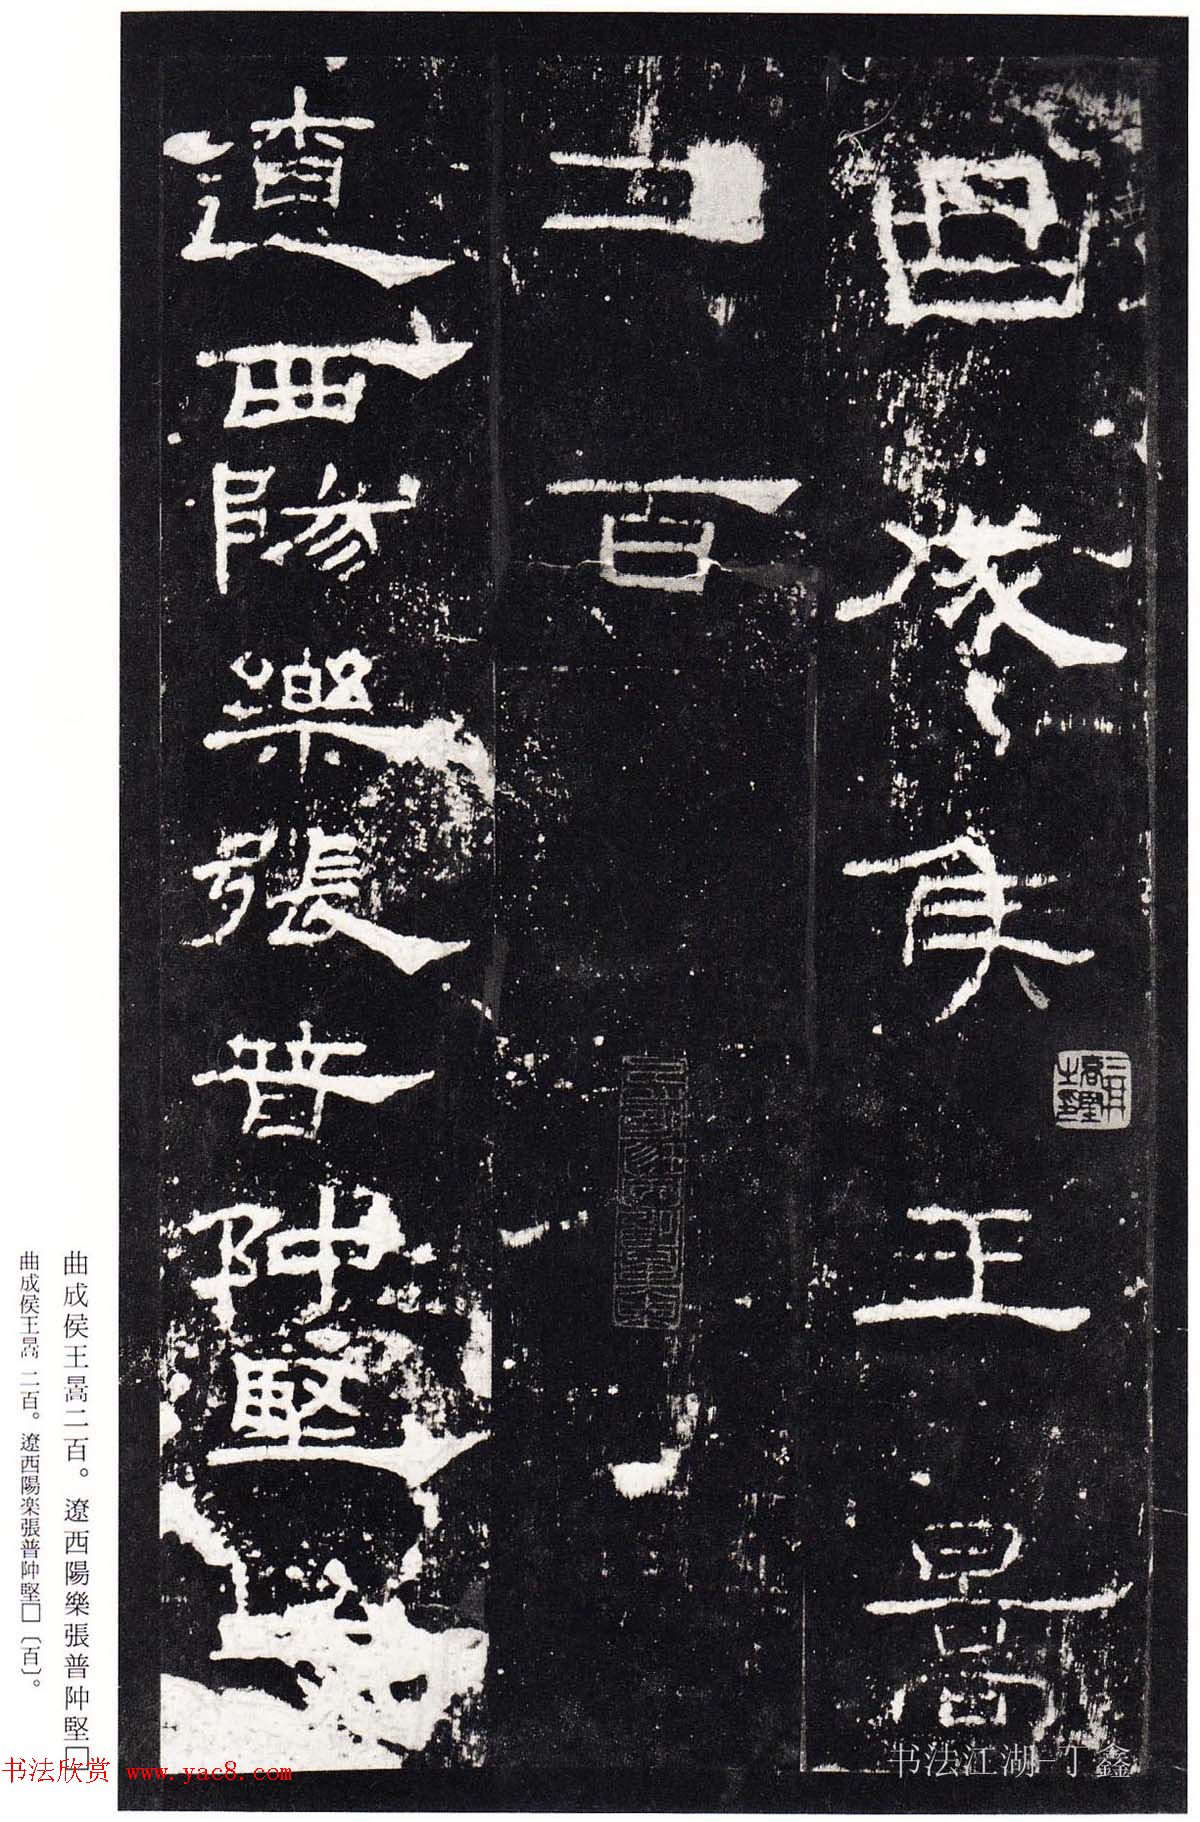 曲成侯王暠
二百
遼西陽樂張普阩堅
曲成侯王暠二百。遼西陽樂張普阩堅□
曲成侯王暠 二百。遼西陽楽張普阩堅□〔百〕。
书法欣赏 www.yac8.com
书法江湖-丁鑫